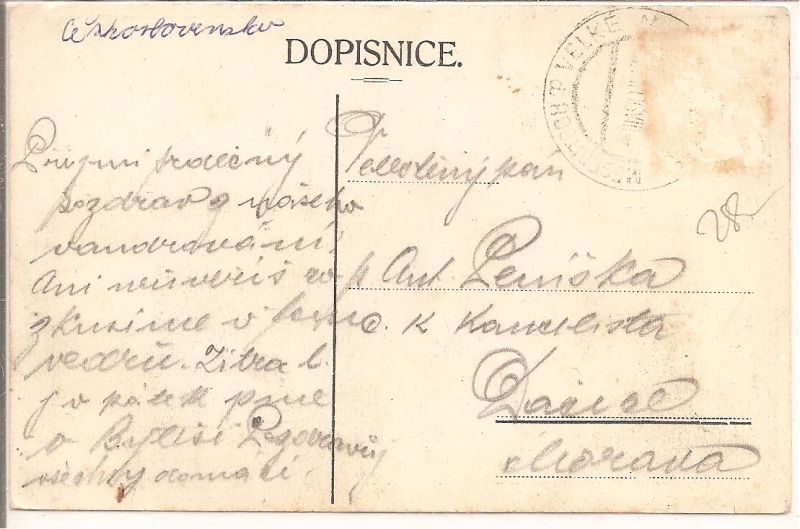 Československo
DOPISNICE.
Přijmi srdečný
pozdrav z našeho
vandrování.
Ani neuvěríš co
zkusíme v tom
vedru. Zítra t.
j. v pátek jsme
v Pozdravuj
všechny domácí
Velectěný pan
p. Ant. Peniška
c. k. Kancelista
Dačice
Morava
VELKÉ M
28